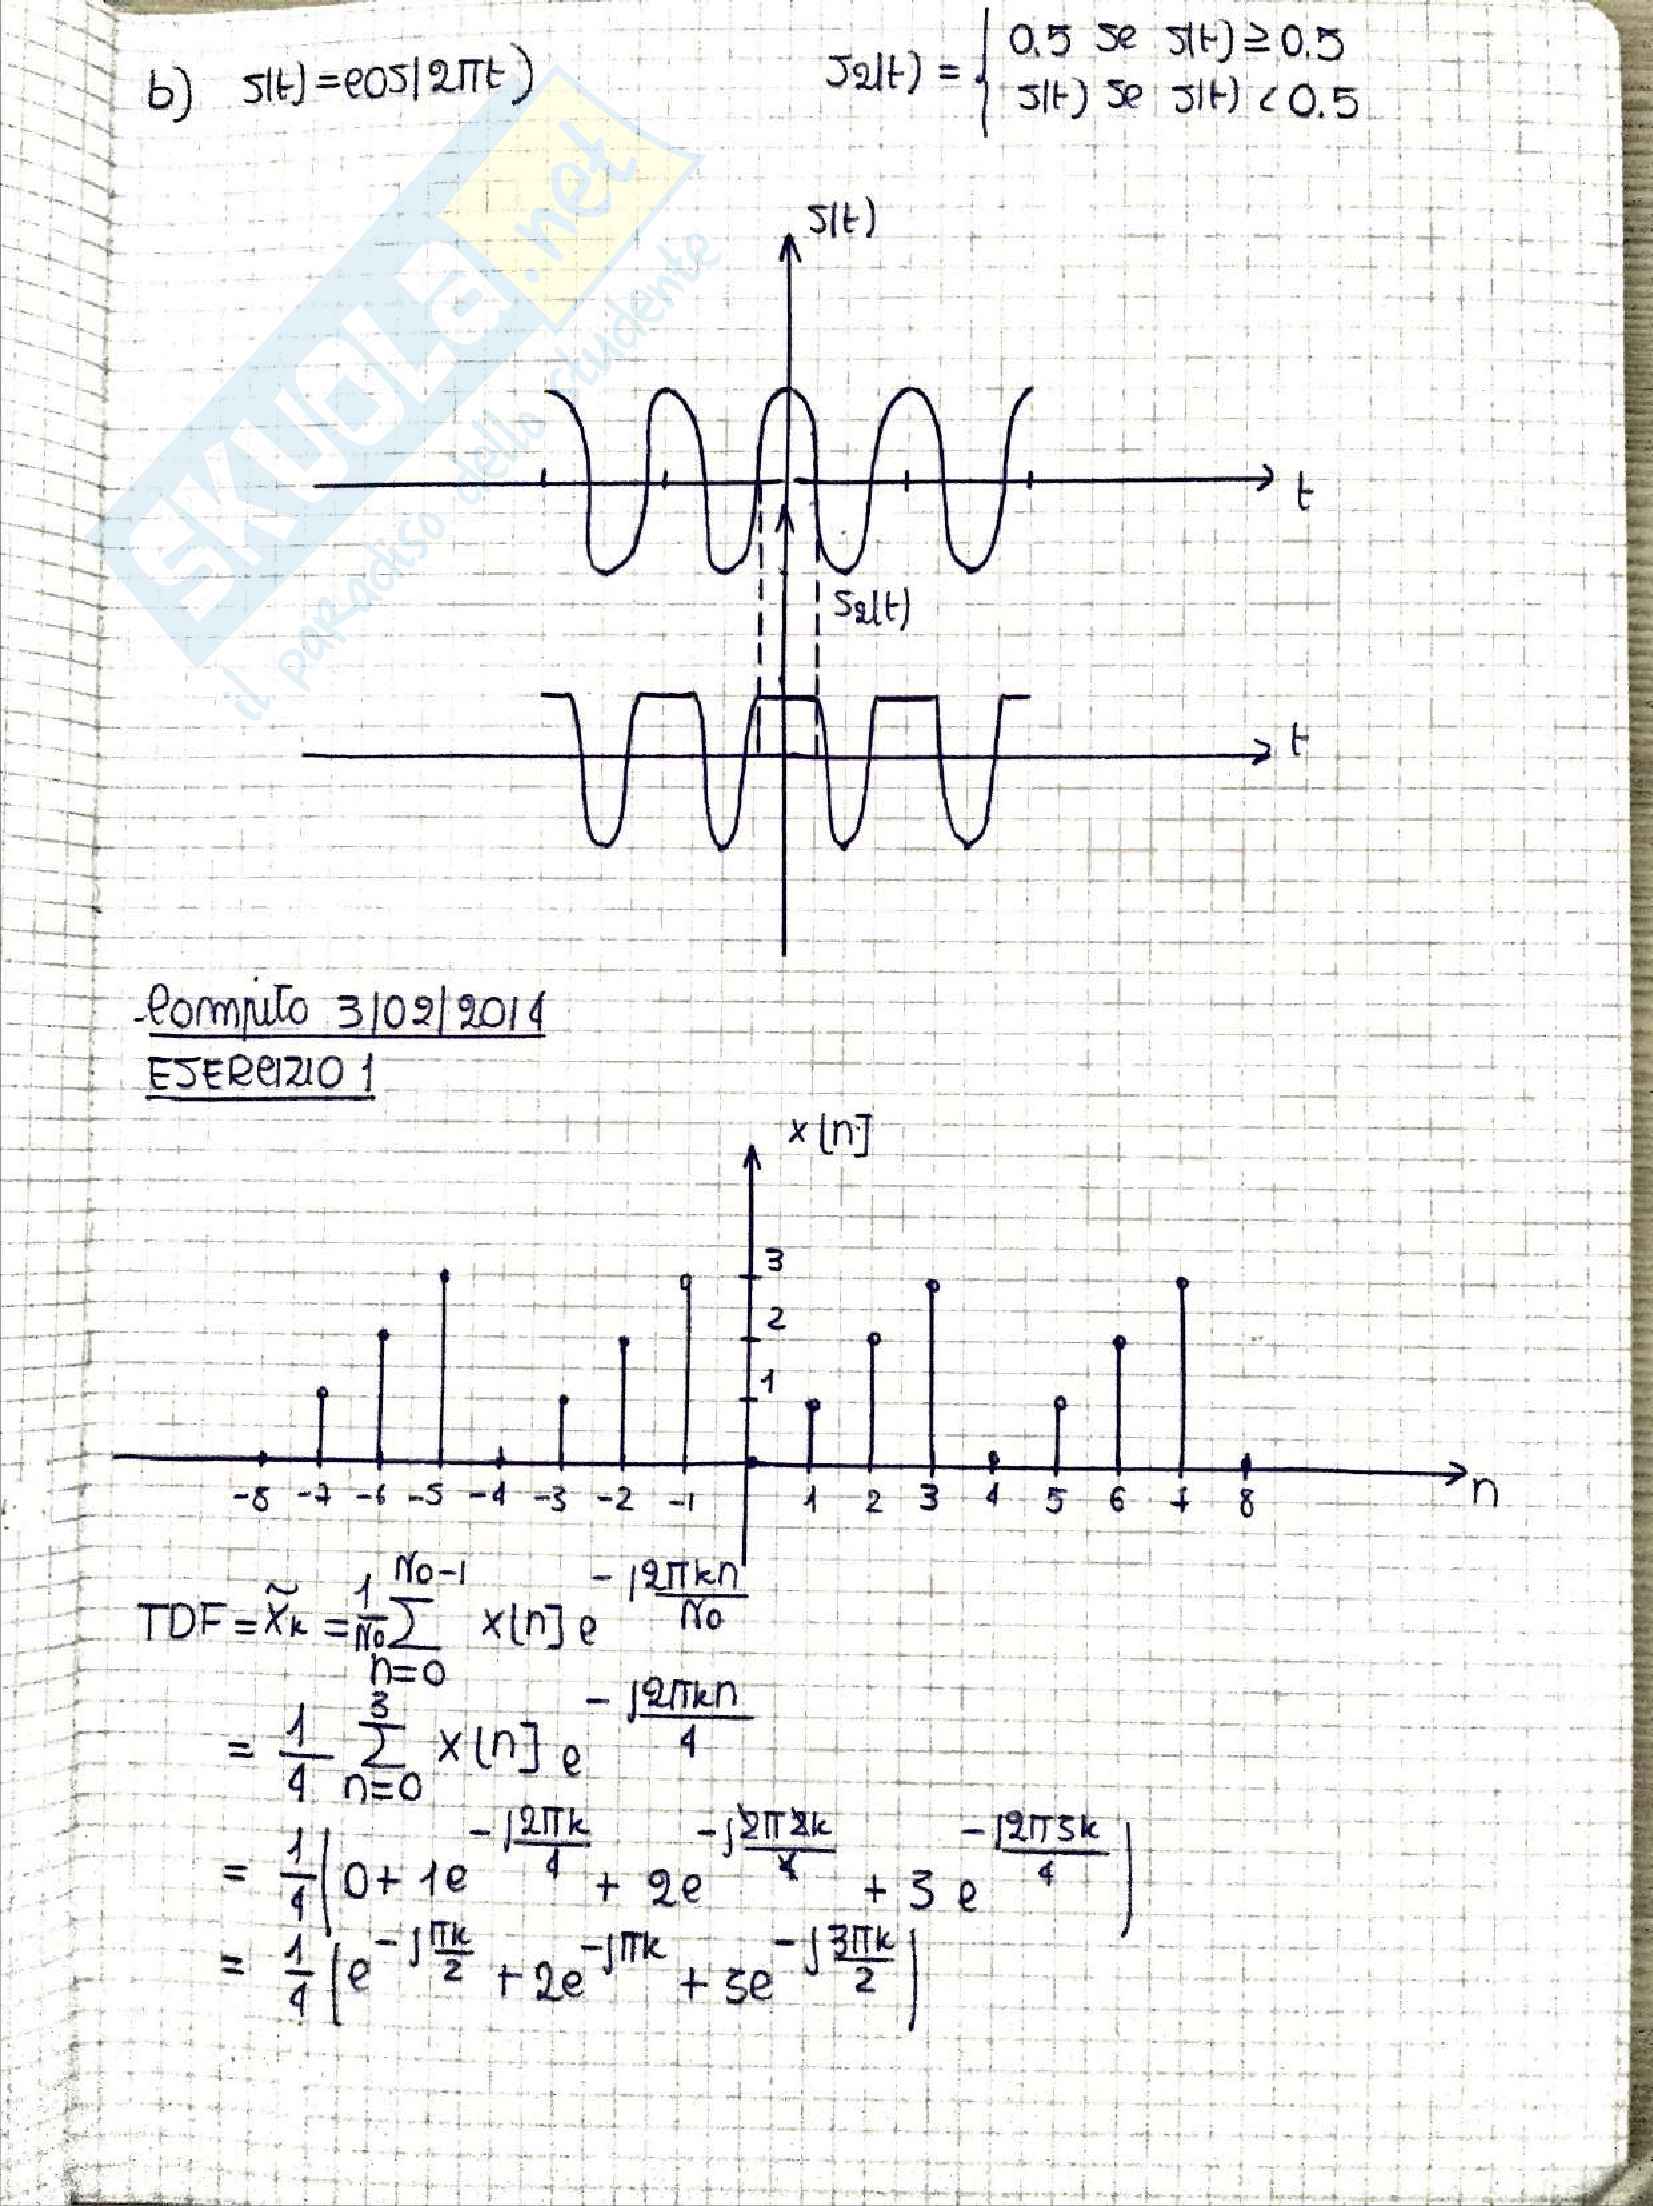 b) s(t)=cos(2πt) s2(t) = { 0.5 se s(t) ≥ 0.5
s(t) se s(t) < 0.5
s(t)
t
s2(t)
t
SKUOLa.net
il paradiso dello studente
Compito 3/02/2014
ESERCIZIO 1
x[n]
3
2
1
-8 -7 -6 -5 -4 -3 -2 -1 1 2 3 4 5 6 7 8 n
TDF = X̃k = 1/N0 Σ_{n=0}^{N0-1} x[n] e^{-j2πkn/N0}
= 1/4 Σ_{n=0}^{3} x[n] e^{-j2πkn/4}
= 1/4 (0 + 1e^{-j2πk/4} + 2e^{-j2π2k/4} + 3e^{-j2π3k/4})
= 1/4 (e^{-jπk/2} + 2e^{-jπk} + 3e^{-j3πk/2})